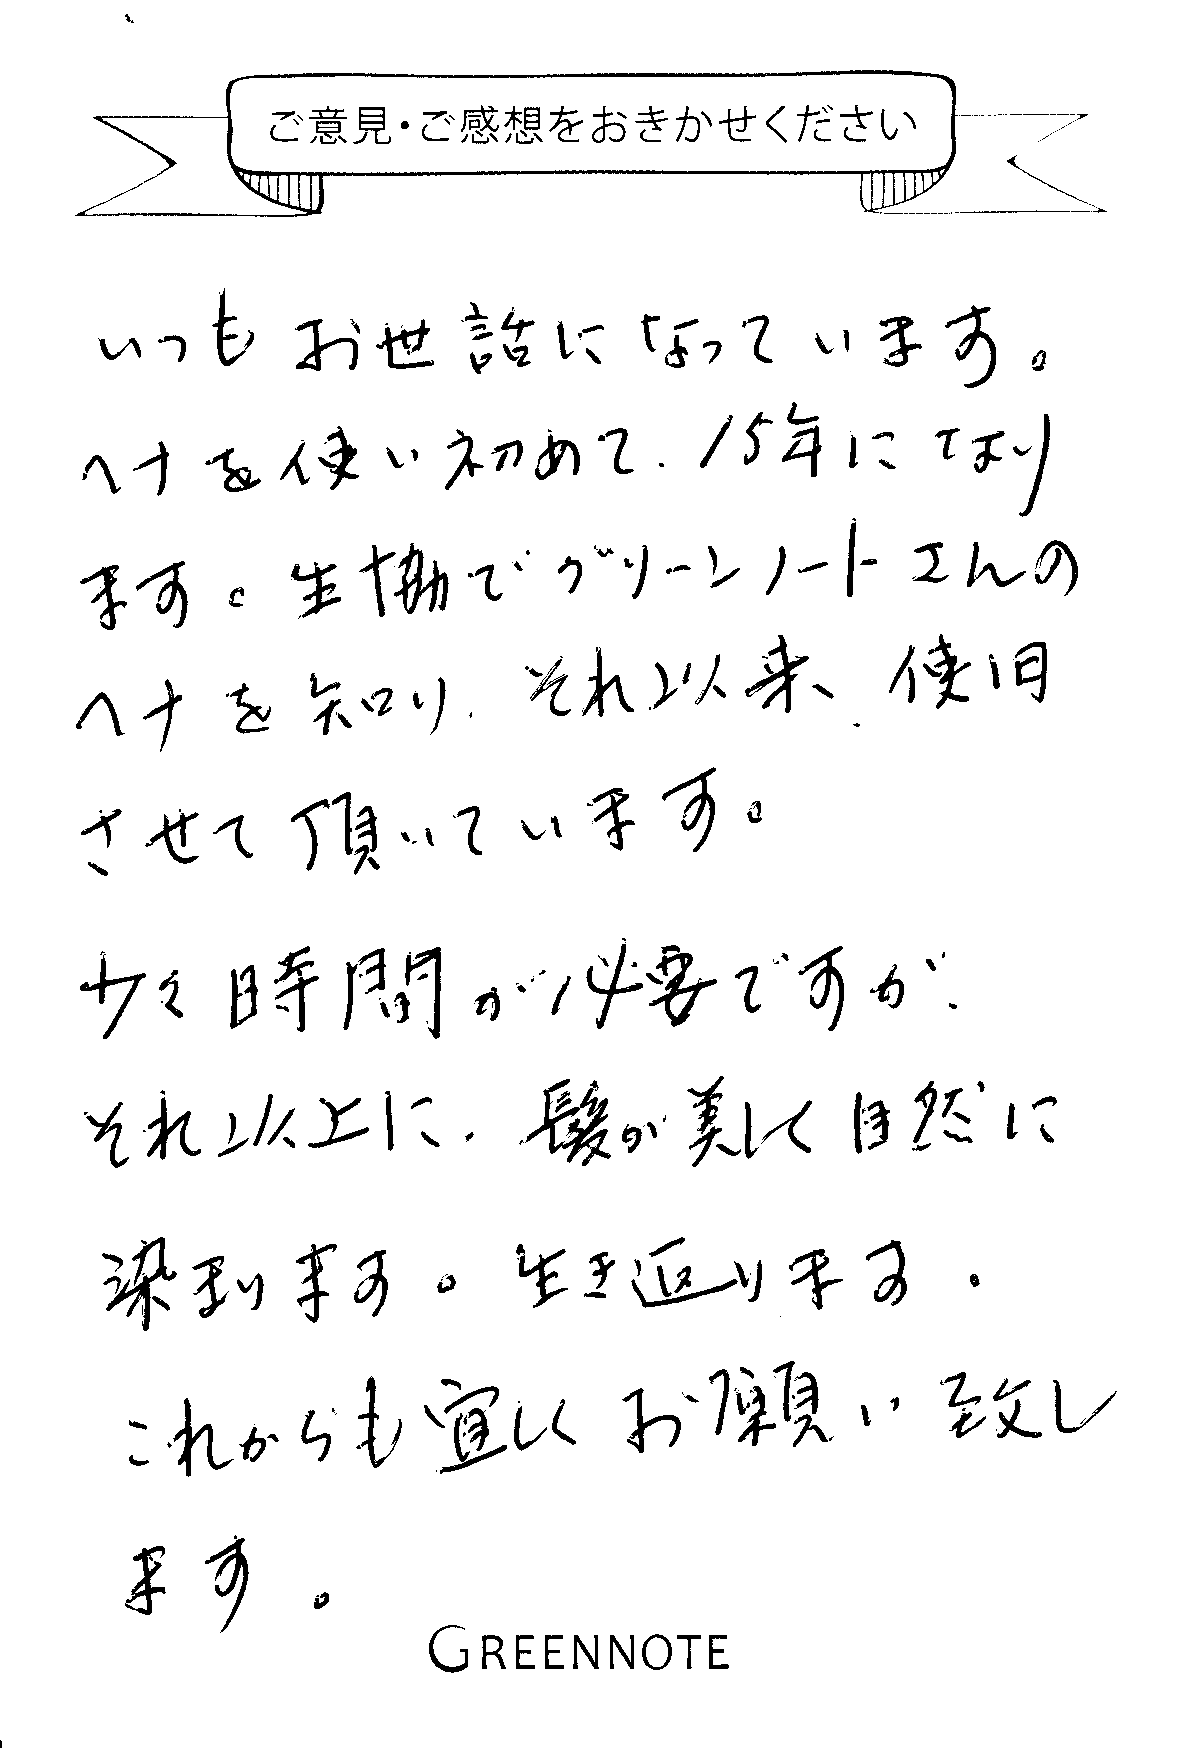 ご意見・ご感想をおきかせください
いつもお世話になっています。
ヘナを使い初めて、15年になり
ます。生協でグリーンノートさんの
ヘナを知り、それ以来、使用
させて頂いています。
少々時間が必要ですが、
それ以上に、髪が美しく自然に
染まります。生き返ります。
これからも宜しくお願い致し
ます。
GREENNOTE